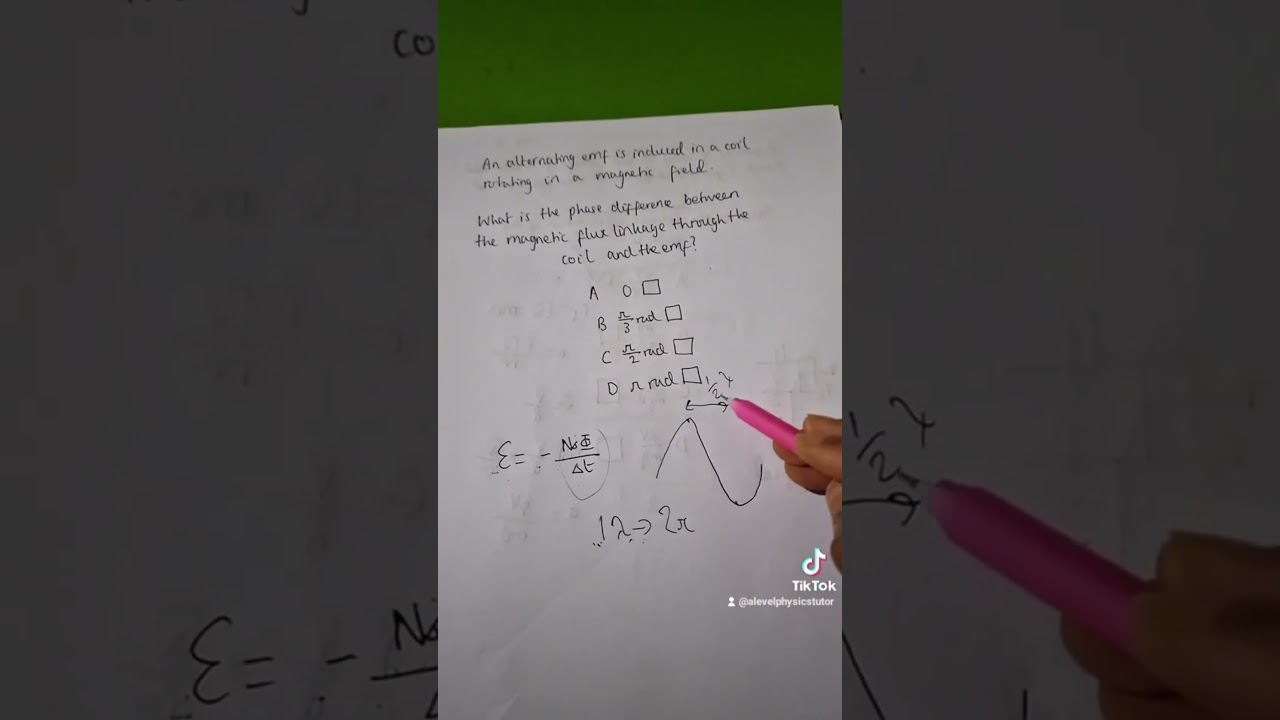 An alternating emf is induced in a coil
rotating in a magnetic field.
What is the phase difference between
the magnetic flux linkage through the
coil and the emf?
A 0
B π/3 rad
C π/2 rad
D π rad
ε = - NΔΦ/Δt
1λ → 2π
TikTok
@alevelphysicstutor
co
ε = -